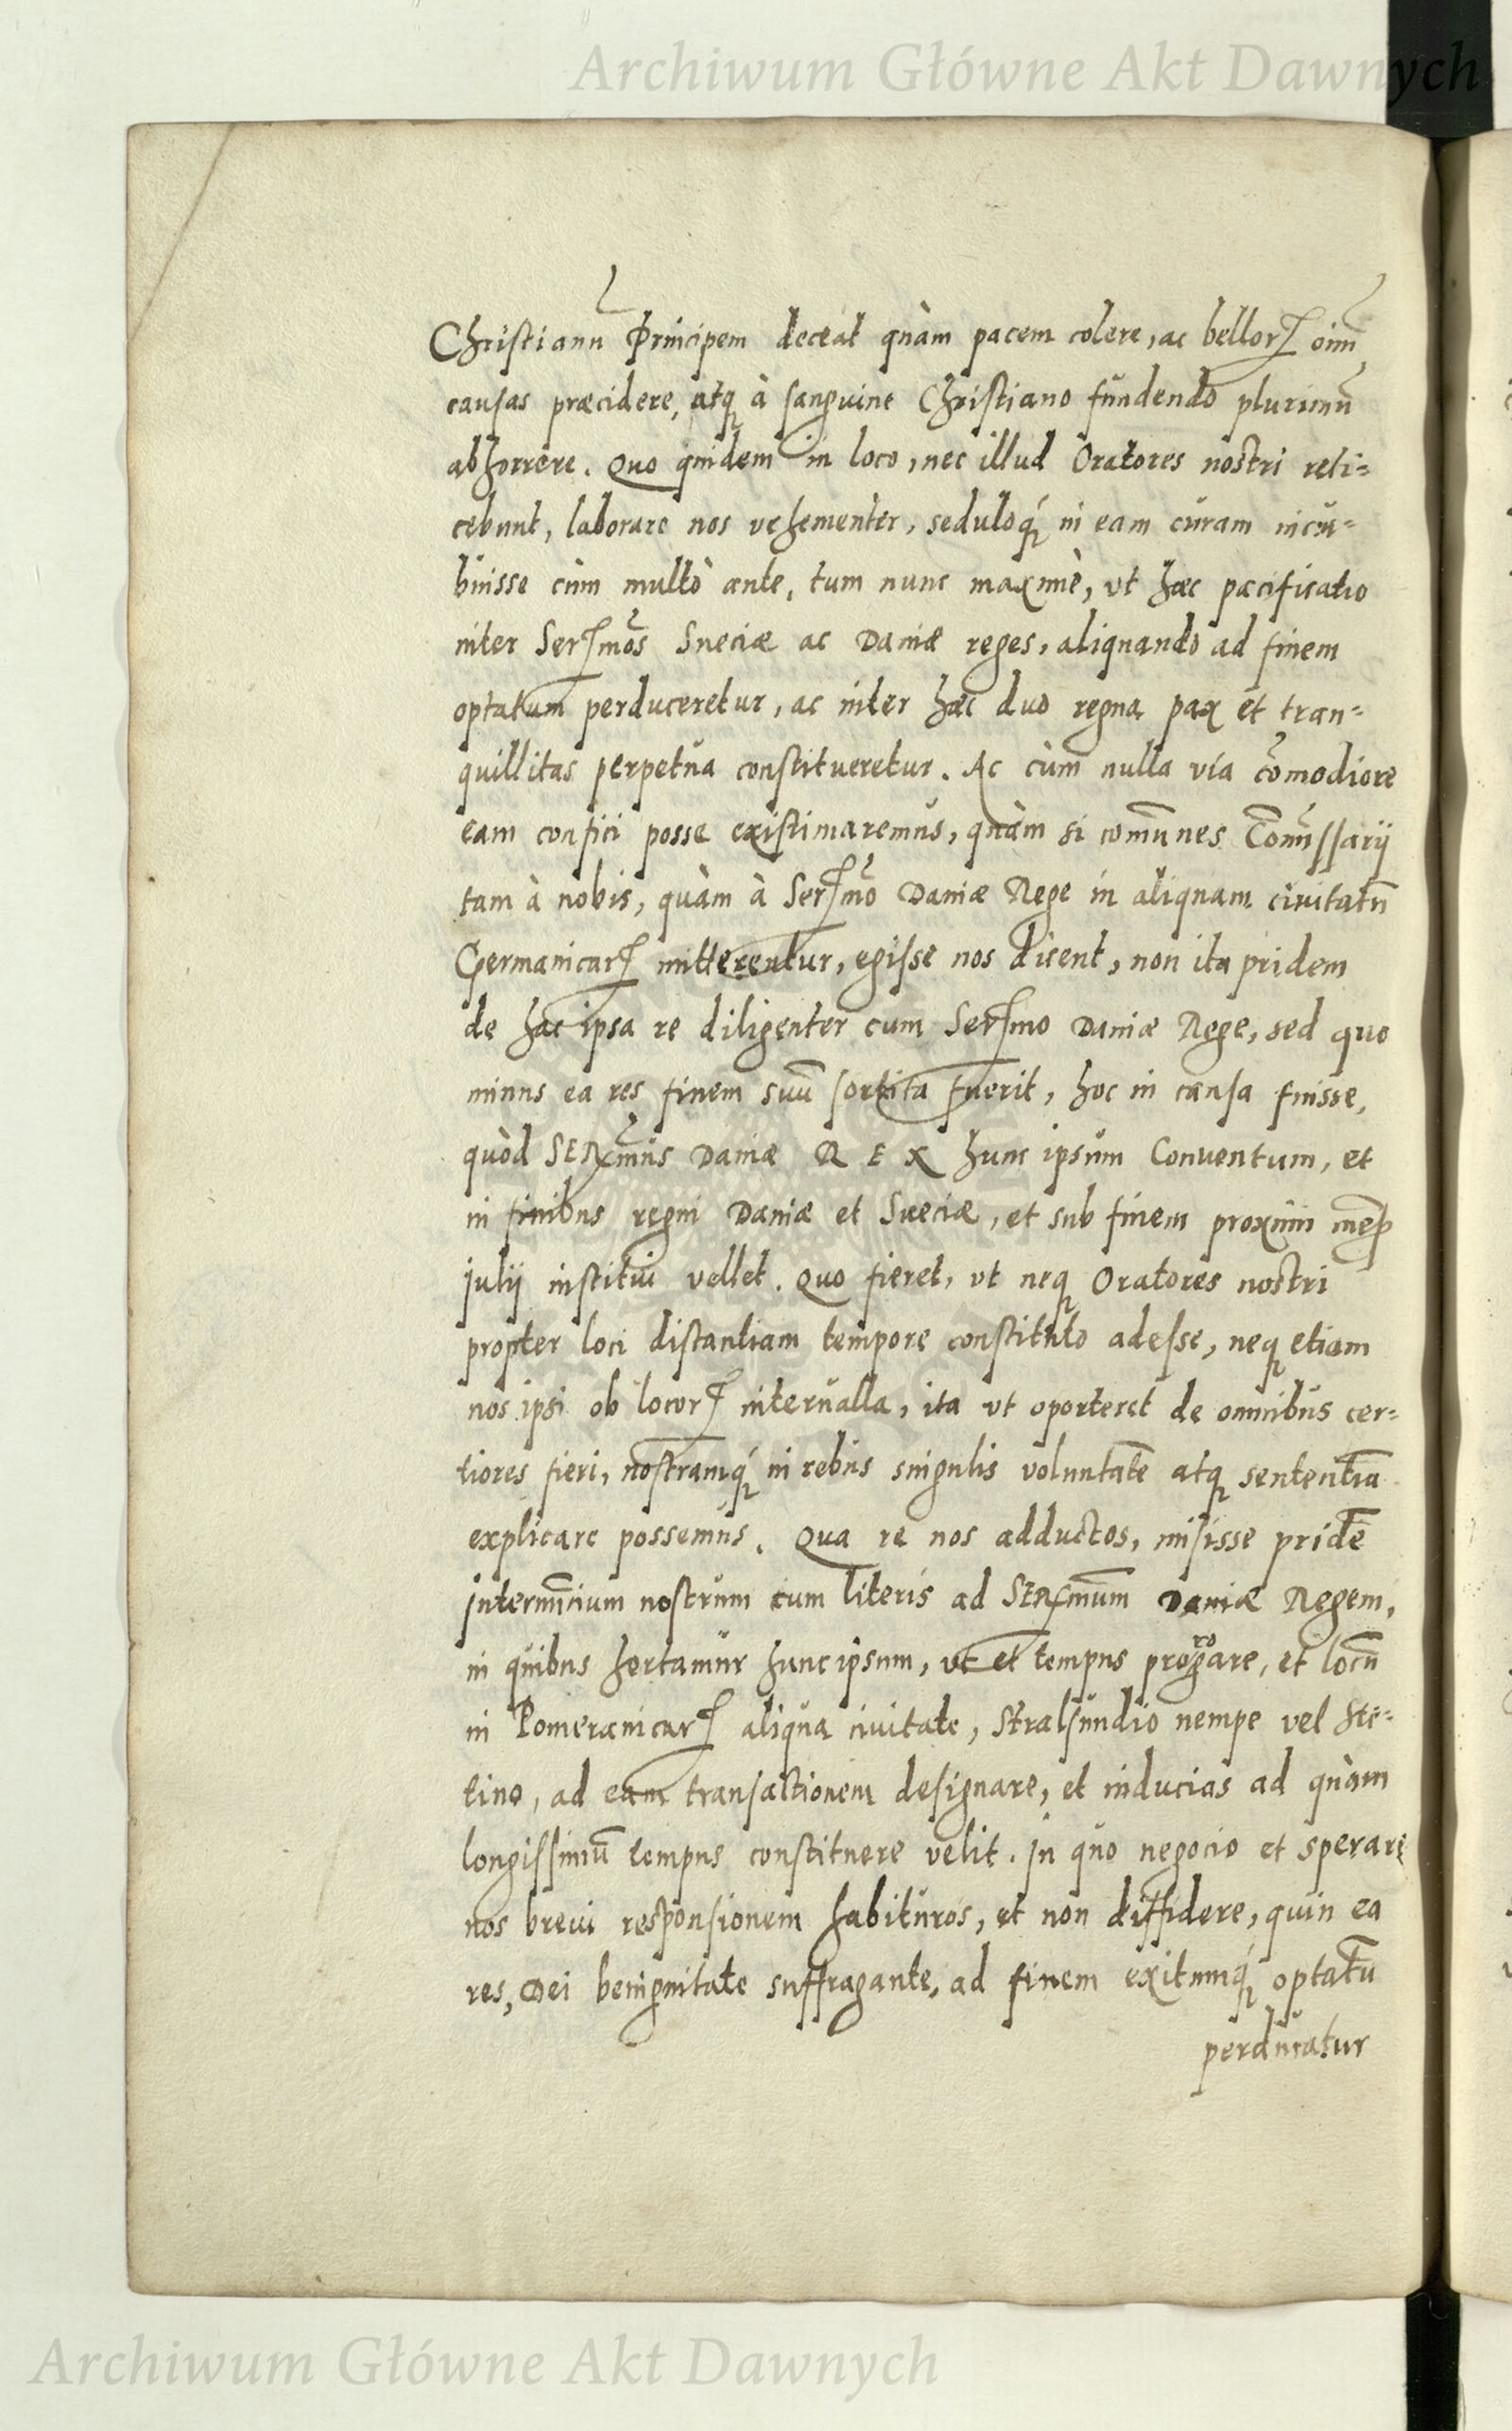 Archiwum Główne Akt Dawnych
Christianũ Principem deceat quàm pacem colere, ac bellorꝝ oim̃
causas præcidere, atqꝫ à sanguine Christiano fundendo plurimũ
abhorrere. Quo quidem in loco, nec illud Oratores nostri reti=
cebunt, laborare nos vehementer, seduloqꝫ́ in eam curam incu=
buisse cùm multò ante, tum nunc maximè, vt hæc pacificatio
inter Serꝫmõs Sueciæ ac Daniæ reges, aliquando ad finem
optatum perduceretur, ac inter hæc duo regna pax et tran=
quillitas perpetua constitueretur. Ac cùm nulla via cõmodiore
eam confici posse existimaremus, quàm si comũnes Com̃issarij
tam à nobis, quàm à Serꝫmõ Daniæ Rege in aliquam ciuitatũ
Germanicarꝝ mitterentur, egisse nos dicent, non ita pridem
de hac ipsa re diligenter cum Serꝫmo Daniæ Rege, sed quo
minus ea res finem suũ sortita fuerit, hoc in causa fuisse,
quòd SERꝫmũs Daniæ R E X hunc ipsum Conventum, et
in finibus regni Daniæ et Sueciæ, et sub finem proximi meñꝭ
julij institui vellet. Quo fieret, vt neqꝫ Oratores nostri
propter loci distantiam tempore constituto adesse, neqꝫ etiam
nos ipsi ob locorꝝ interualla, ita vt oporteret de omnibus cer=
tiores fieri, nostramqꝫ́ in rebus singulis voluntatẽ atqꝫ sententiã
explicare possemus. Qua re nos adductos, misisse pridẽ
jnternũcium nostrum cum literis ad SERꝫmum Daniæ Regem,
in quibus hortamur hunc ipsum, vt et tempus prorogare, et locũ
in Pomeranicarꝝ aliqua ciuitate, Stralsundio nempe vel Ste=
tino, ad eam transactionem designare, et inducias ad quàm
longissimũ tempus constituere velit. In quo negocio et sperare
nos breui responsionem habituros, et non diffidere, quin ea
res, Dei benignitate suffragante, ad finem exitumqꝫ́ optatũ
perducatur
Archiwum Główne Akt Dawnych